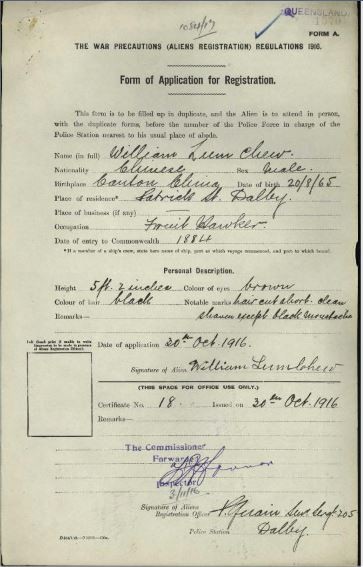 QUEENSLAND
FORM A.
THE WAR PRECAUTIONS (ALIENS REGISTRATION) REGULATIONS 1916.
Form of Application for Registration.
This form is to be filled up in duplicate, and the Alien is to attend in person,
with the duplicate forms, before the member of the Police Force in charge of the
Police Station nearest to his usual place of abode.
Name (in full) William Lum Chew.
Nationality Chinese Sex Male.
Birthplace Canton China Date of birth 20/8/65
Place of residence* Patrick St. Dalby.
Place of business (if any)
Occupation Fruit Hawker.
Date of entry to Commonwealth 1884
* If a member of a ship's crew, state here name of ship, port at which voyage commenced, and port to which bound.
Personal Description.
Height 5ft. 2 inches Colour of eyes brown
Colour of hair black Notable marks hair cut short. clean
Remarks— shaven except black moustache
Date of application 20th Oct. 1916.
Signature of Alien William Lumchew
(THIS SPACE FOR OFFICE USE ONLY.)
Certificate No. 18. Issued on 20th Oct. 1916
Remarks—
The Commissioner
Forwarded
Inspector
3/11/16
Signature of Aliens
Registration Officer 205
Police Station Dalby.